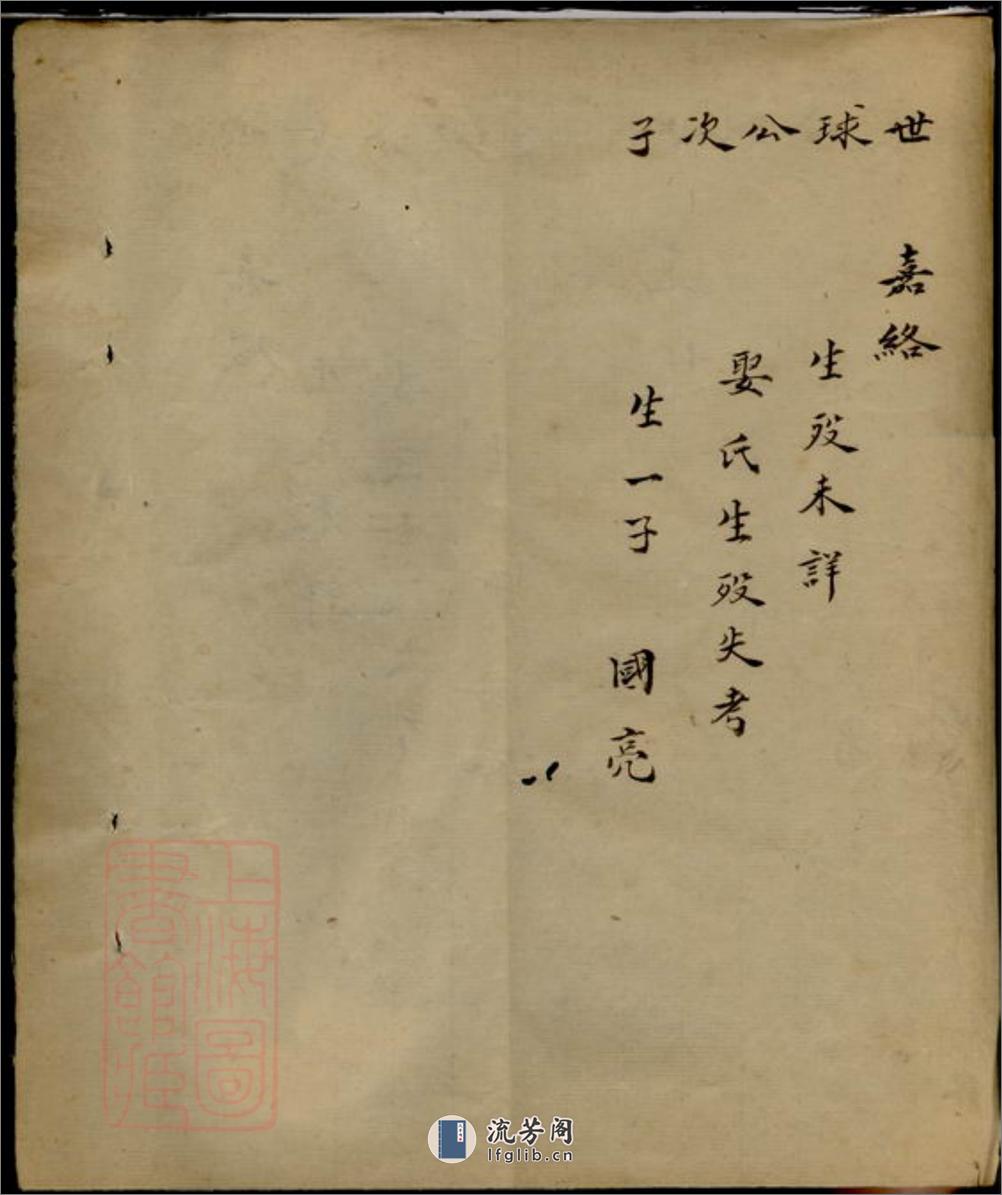 世球公次子
嘉絡
生殁未詳
娶氏生殁失考
生一子 國亮
上海圖書館藏
流芳阁
lfglib.cn